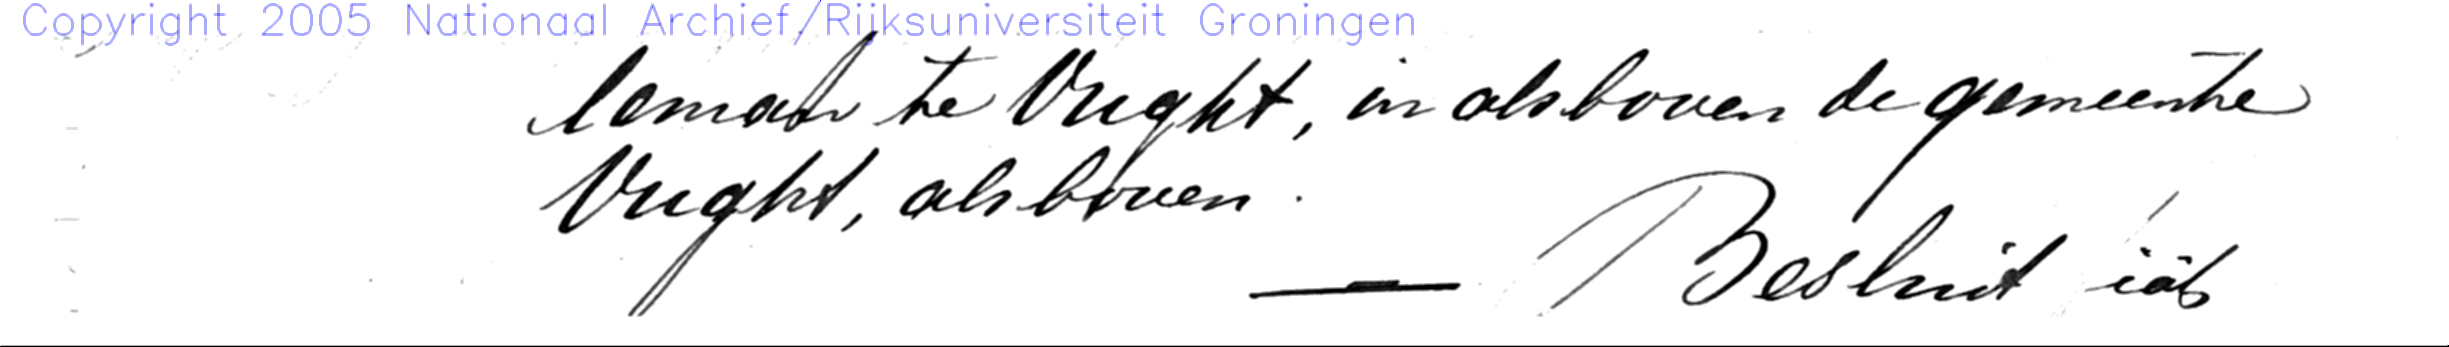 Copyright 2005 Nationaal Archief/Rijksuniversiteit Groningen
te Vught, in alsboven de gemeente
Vught, alsboven.
— Besluit